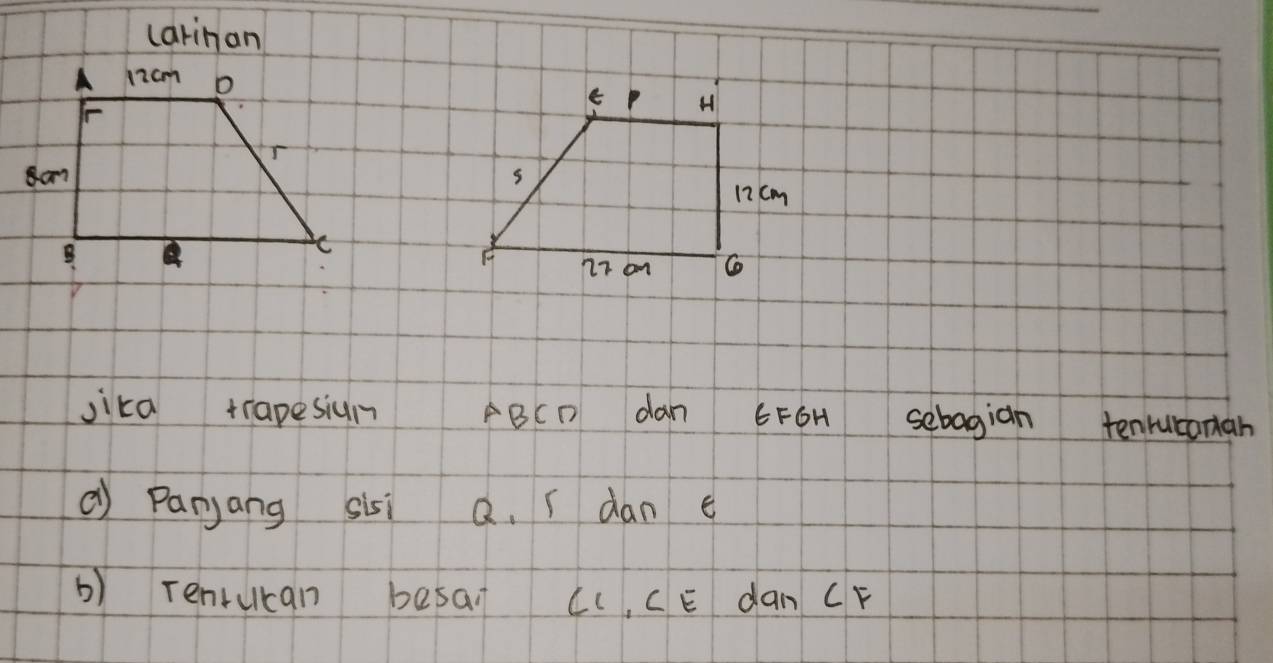 Latihan
A 12cm D
E P H
r
8cm
s
12 cm
B Q C
F 27 cm G
Jika trapesium ABCD dan EFGH sebagian tentukanlah
a) Panjang sisi Q, r dan
b) Tentukan besar ∠C, ∠E dan ∠F